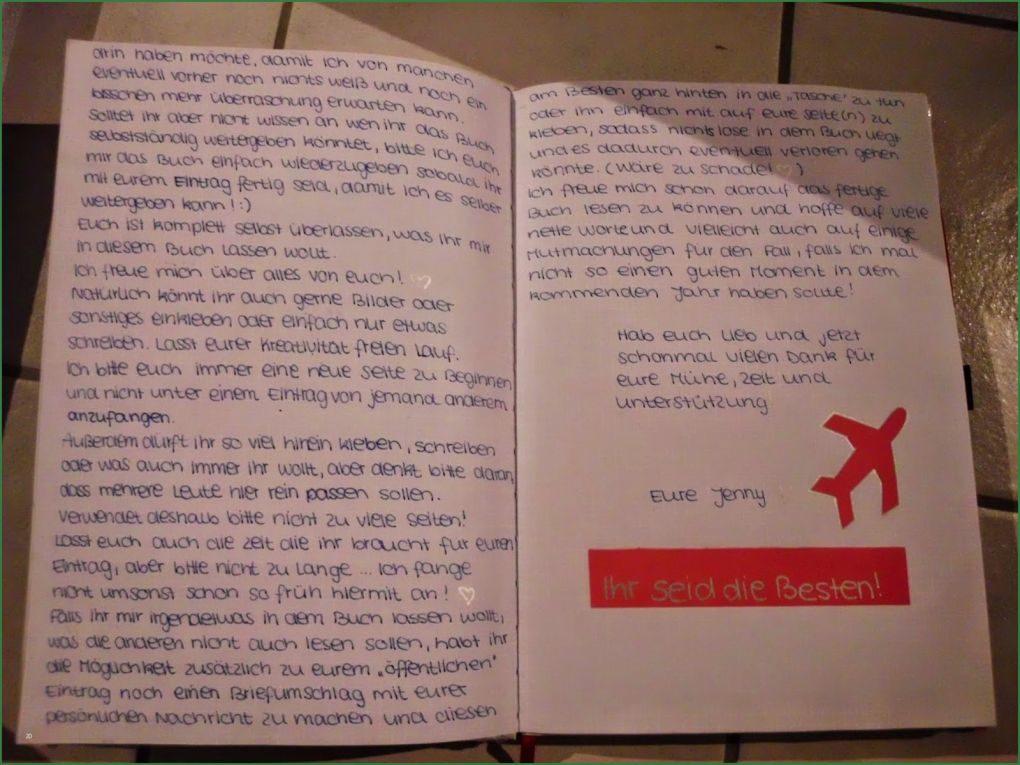 drin haben möchte, damit ich von manchen
eventuell vorher noch nichts weiß und noch ein
bisschen mehr Überraschung erwarten kann.
Solltet ihr aber nicht wissen an wen ihr das Buch
selbstständig weitergeben könntet, bitte ich euch
mir das Buch einfach wiederzugeben sobald ihr
mit eurem Eintrag fertig seid, damit ich es selber
weitergeben kann! :)
Euch ist komplett selbst überlassen, was ihr mir
in diesem Buch lassen wollt.
Ich freue mich über alles von euch! ♡
Natürlich könnt ihr auch gerne Bilder oder
sonstiges einkleben oder einfach nur etwas
schreiben. Lasst eurer Kreativität freien Lauf.
Ich bitte euch immer eine neue Seite zu Beginnen
und nicht unter einem Eintrag von jemand anderem
anzufangen.
Außerdem dürft ihr so viel hinein kleben, schreiben
oder was auch immer ihr wollt, aber denkt bitte daran,
dass mehrere Leute hier rein passen sollen.
Verwendet deshalb bitte nicht zu viele Seiten!
Lasst euch auch die Zeit die ihr braucht für euren
Eintrag, aber bitte nicht zu Lange ... Ich fange
nicht umsonst schon so früh hiermit an! ♡
Falls ihr mir irgendetwas in dem Buch lassen wollt,
was die anderen nicht auch lesen sollen, habt ihr
die Möglichkeit zusätzlich zu eurem „öffentlichen"
Eintrag noch einen Briefumschlag mit eurer
persönlichen Nachricht zu machen und diesen
20
am Besten ganz hinten in die „Tasche" zu tun
oder ihn einfach mit auf eure Seite(n) zu
kleben, sodass nichts lose in dem Buch liegt
und es dadurch eventuell verloren gehen
könnte. (Wäre zu schade! ♡ )
Ich freue mich schon darauf das fertige
Buch lesen zu können und hoffe auf viele
nette Worte und vielleicht auch auf einige
Mutmachungen für den Fall, falls ich mal
nicht so einen guten Moment in dem
kommenden Jahr haben sollte!
Hab euch lieb und jetzt
schonmal vielen Dank für
eure Mühe, Zeit und
Unterstützung
Eure Jenny
Ihr seid die Besten!